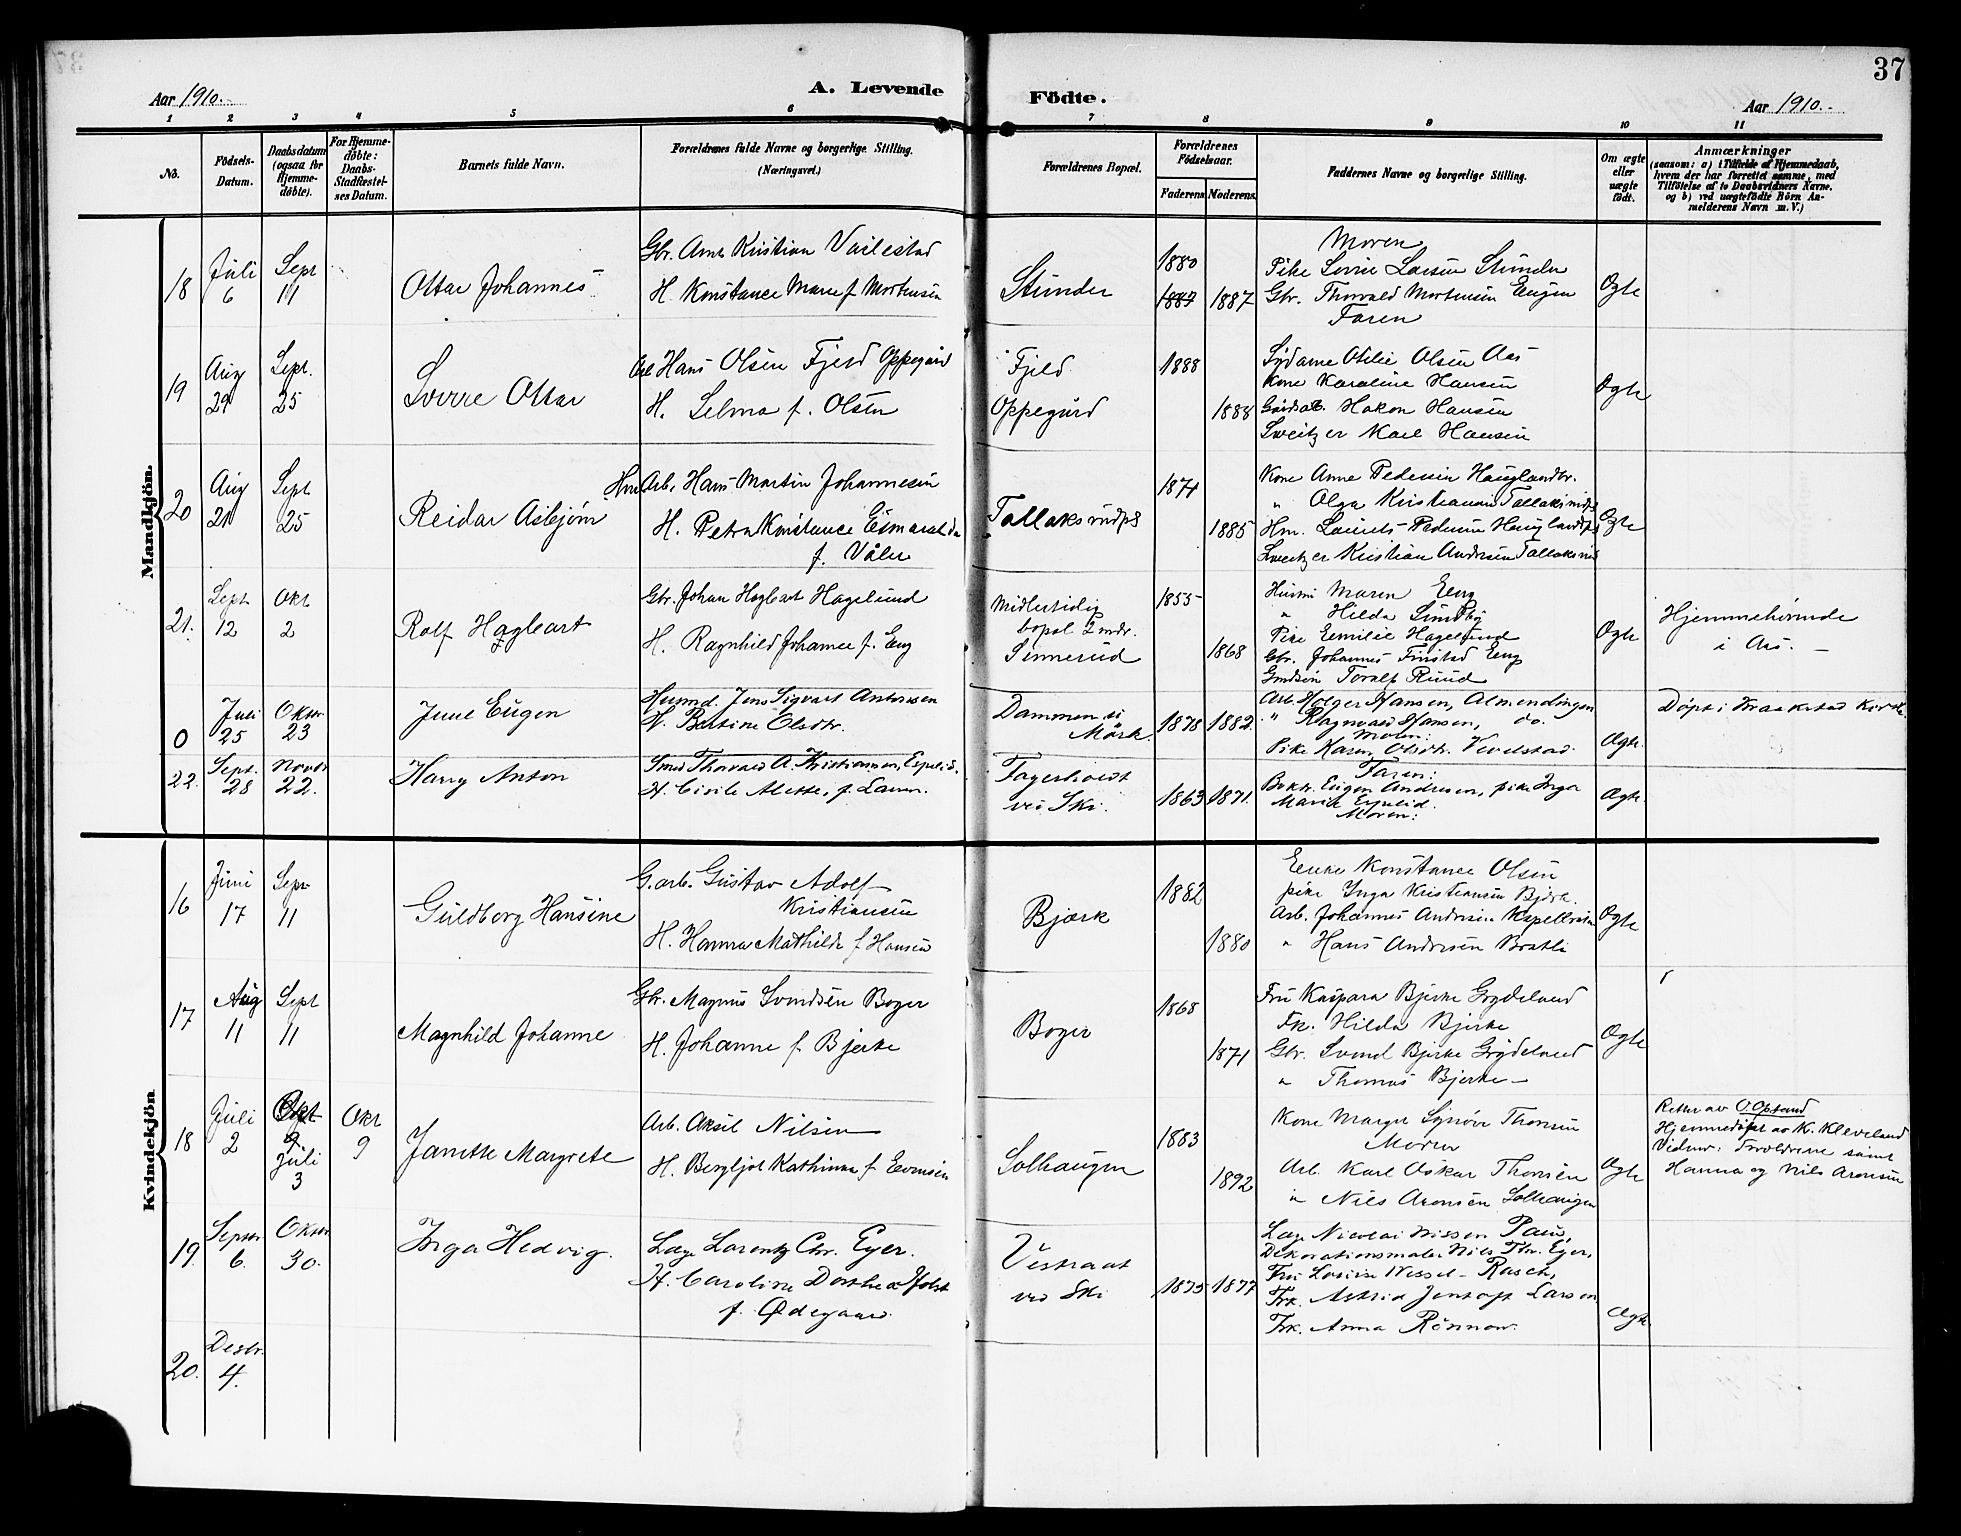 37
Aar 1910.
A. Levende
Födte.
Aar 1910.
1 2 3 4 5 6 7 8 9 10 11
No.
Födsels-
Datum.
Daabsdatum
(ogsaa for
Hjemme-
döbte).
For Hjemme-
döbte:
Daabs-
Stadfæstel-
ses Datum.
Barnets fulde Navn.
Forældrenes fulde Navne og borgerlige Stilling.
(Næringsvei.)
Forældrenes Bopæl.
Forældrenes
Födselsaar.
Faderens Moderens.
Faddernes Navne og borgerlige Stilling.
Om ægte
eller
uægte
födt.
Anmærkninger
(saasom: a) i Tilfælde af Hjemmedaab,
hvem der har forrettet samme, med
Tilföielse af to Daabsvidners Navne,
og b) ved uægtefödte Börn An-
melderens Navn m.V.)
Mandkjön.
18
Juli
6
Sept
11
Ottar Johannes
Gbr. Arne Kristian Vailestad
H. Konstance Marie f. Mortensen
Stunder
1880
1887 1887
Moren
Pike Lovise Larsen Stunder
Gbr. Thorvald Mortensen Engen
Faren
Ogte
19
Aug
29
Sept.
25
Sverre Ottar
Arb Hans Olsen Fjeld Oppegård
H. Selma f. Olsen
Fjeld
Oppegård
1888
1888
Sydame Otilie Olsen Aas
Kone Karoline Hansen
Gårdsarb. Hakon Hansen
Sveitzer Karl Hansen
Ogte
20
Aug
21
Sept
25
Reidar Asbjørn
Hm. Arb. Hans Martin Johannesen
H. Petra Konstance Esmaralda
f. Våler
Tallaksrudps
1871
1885
Kone Anna Pedersen Hauglandbr.
" Olga Kristiansen Tallaksrudps
Hm. Laurits Pedersen Hauglandps
Sveitzer Kristian Andersen Tallaksrud
Ogte
21.
Sept
12
Okt
2
Rolf Hagbart
Gbr. Johan Hagbart Hagelund
H. Ragnhild Johanne f. Eng
Midlertidig
bopæl 2 mdr.
Finnerud
1855
1868
Hustru Maren Eng
" Hilda Sundby
Pike Emilie Hagelund
Gbr. Johannes Finstad Eng
Grdssøn Toralf Ruud
Ogte
Hjemmehørende
i Aas.
0
Juli
25
Oktbr.
23
June Eugen
Husmd. Jens Sigvart Antonsen
H. Bertine Olsdtr.
Dammen si
Mörk.
1878 1882.
Arb. Holger Hansen, Almendingen
" Ragnvald Hansen, do.
Moren:
Pike Karen Olsdtr. Vevelstad.
Ægte.
Döpt i Kraakstad Kirke.
22.
Sept.
28
Novbr
22.
Harry Anton
Smed Thorvald A. Kristiansen, Espelid.
H. Cicile Alette, f. Larsen.
Fagerholdt
ved Ski.
1863 1871.
Faren:
Boktr. Eugen Andresen, pike Inga
Marie Espelid.
Moren:
Ægte.
Kvindekjön
16
Juni
17
Sept
11
Guldborg Hansine
G.arb. Gustav Adolf
Kristiansen
H. Hanna Mathilde f Hansen
Bjærk
1882
1880
Enke Konstance Olsen
pike Inga Kristiansen Bjørk.
Arb. Johannes Andersen Kapellveien
" Hans Andersen Bratli
Ogte
17
Aug
11
Sept
11
Magnhild Johanne
Gbr. Magnus Svendsen Boger
H. Johanne f. Bjerke
Boger
1868
1871
Fru Kaspara Bjerke Grydeland
Fk. Hilda Bjerke
Gbr. Svend Bjerke Grydeland
" Thomas Bjerke
Ogte
18
Juli
2
Okt
9.
Juli
3
Okt
9
Janette Margrete
Arb. Aksel Nilsen
H. Bergljot Kathinka f Evensen
Solhaugen
1883
1892
Kone Margit Synöve Thorsen
Moren
Arb. Karl Oskar Thorsen
" Nils Aronsen Solhaugen
Ogte
Rettet av O. Opsand
Hjemmedøpt av K. Kleveland
Vidner: Forældrene samt
Hanna og Nils Aronsen
19.
Septbr
6.
Oktbr.
30.
Inga Hedvig.
Læge Lorentz Chr. Eger.
H. Caroline Dorthea Holst
f. Ödegaard.
Vestraat
ved Ski
1875 1877
Læge Nicolai Nissen Paus,
Dekorationsmaler Nils Thr. Eger,
Fru Louise Wessel-Rasch,
Frk. Astrid Jentoft Larsen
Frk. Anna Rönnow.
Ægte.
20.
Desbr.
4.